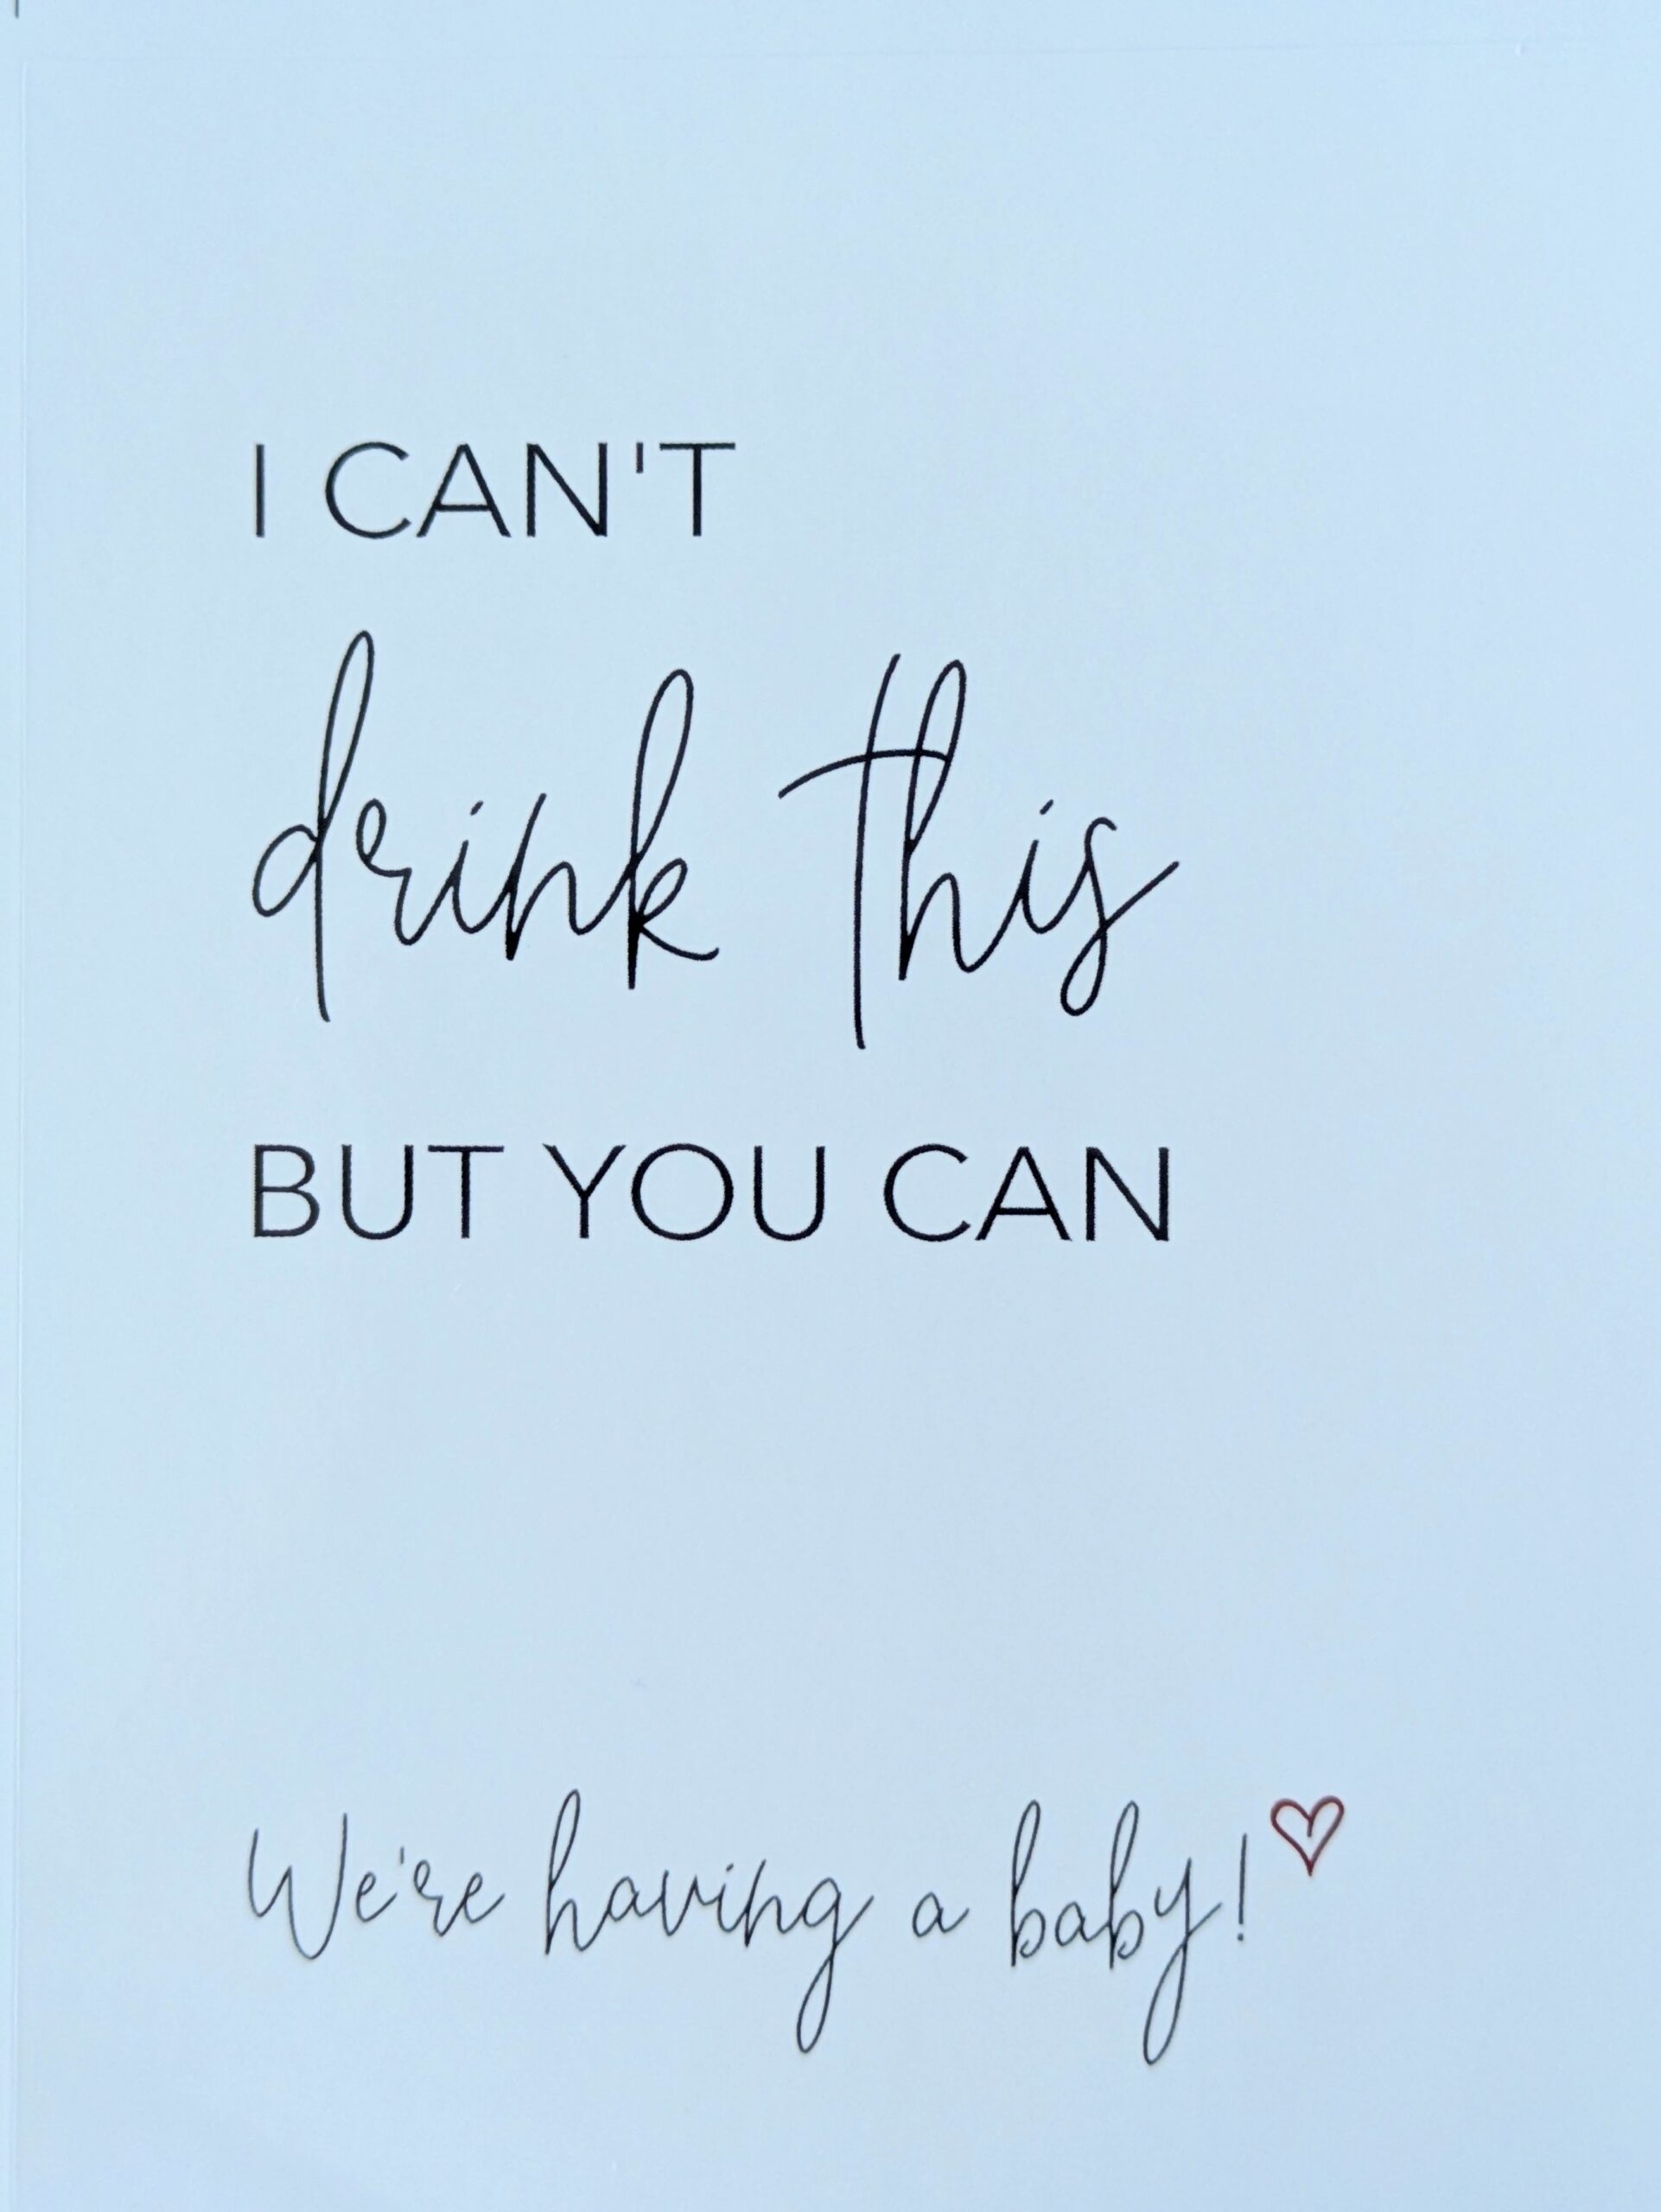 I CAN'T
drink this
BUT YOU CAN
We're having a baby!